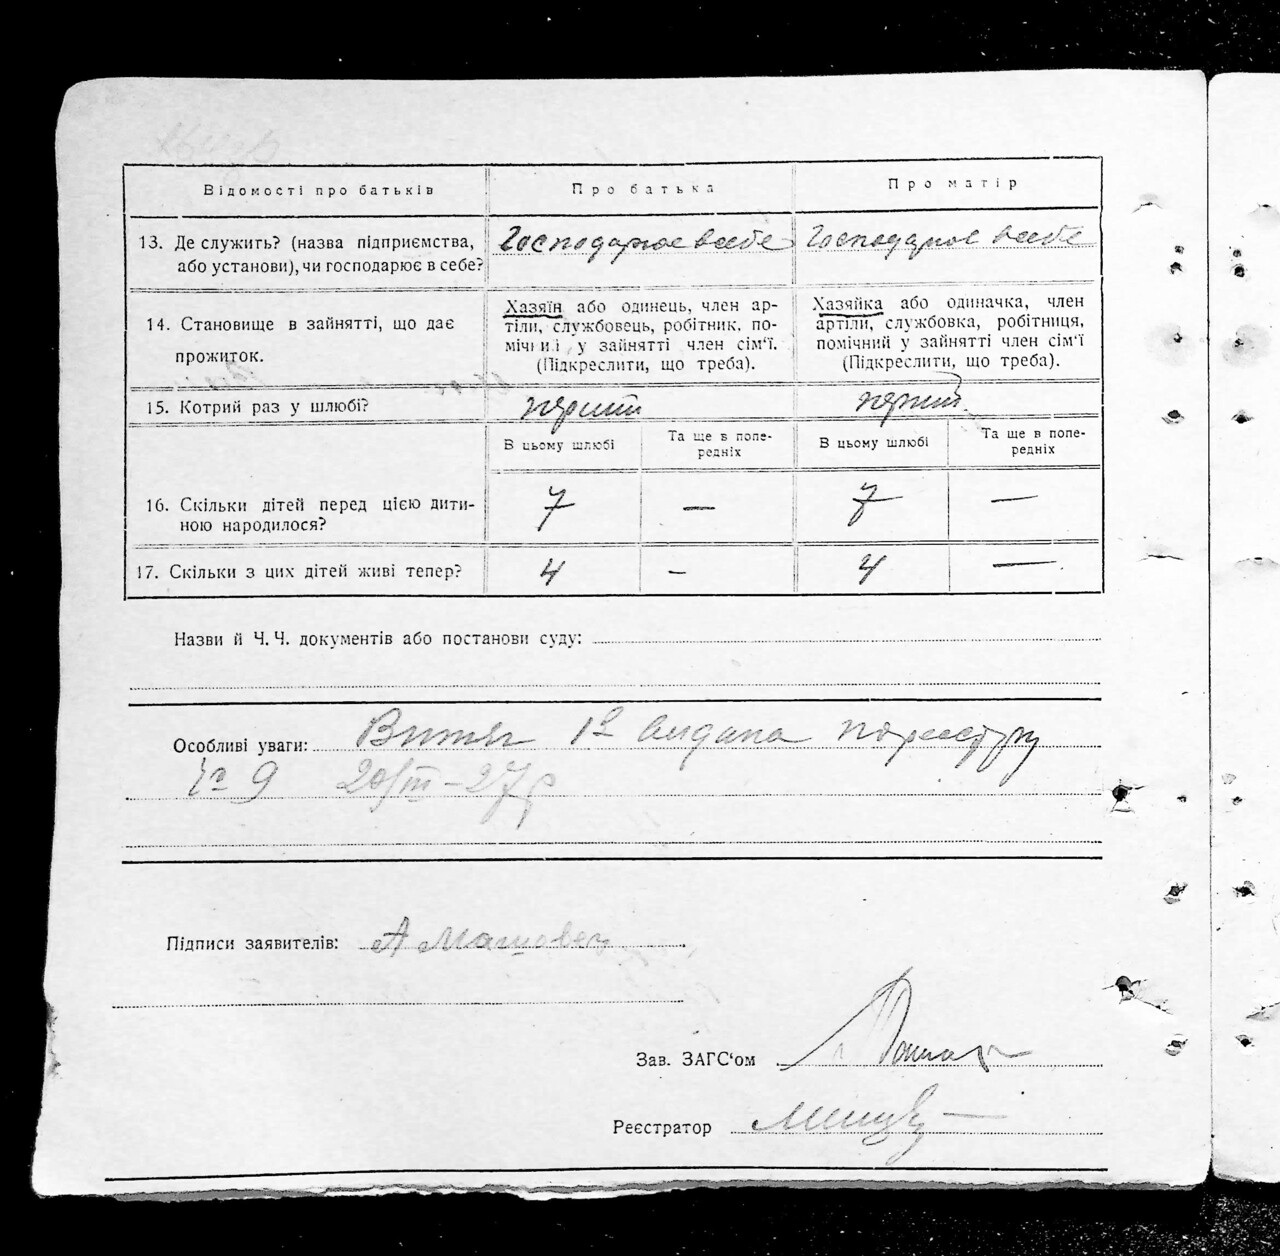 Відомості про батьків
Про батька
Про матір
13. Де служить? (назва підприємства,
або установи), чи господарює в себе?
Господарює в себе
Господарює в себе
14. Становище в зайнятті, що дає
прожиток.
Хазяїн або одинець, член ар-
тіли, службовець, робітник, по-
мічний у зайнятті член сім'ї.
(Підкреслити, що треба).
Хазяйка або одиначка, член
артіли, службовка, робітниця,
помічний у зайнятті член сім'ї
(Підкреслити, що треба).
15. Котрий раз у шлюбі?
перший
перший
В цьому шлюбі
Та ще в попе-
редніх
В цьому шлюбі
Та ще в попе-
редніх
16. Скільки дітей перед цією дити-
ною народилося?
7
—
7
—
17. Скільки з цих дітей живі тепер?
4
–
4
—
Назви й Ч. Ч. документів або постанови суду:
Особливі уваги: Витяг видана по реєстру
№ 9 20/III–27р
Підписи заявителів: А Машовец
Зав. ЗАГС'ом
Реєстратор